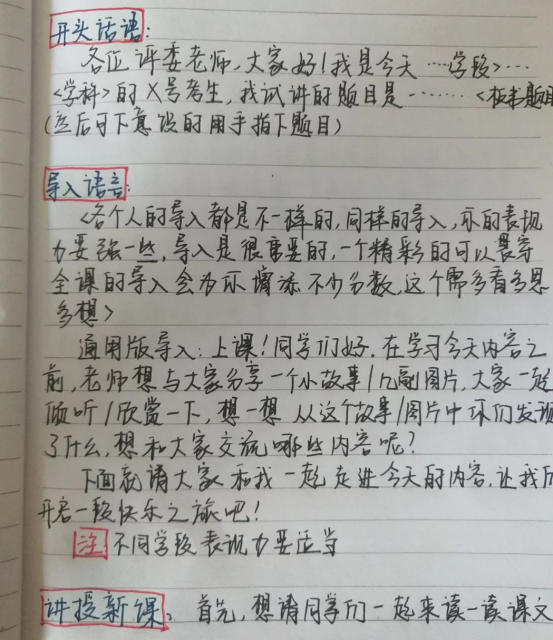 开头话语:
各位评委老师,大家好!我是今天……学段>…
<学科>的X号考生,我试讲的题目是………<板书题目
(然后可下意识的用手指下题目)
导入语言:
<各个人的导入都是不一样的,同样的导入,你的表现
力要强一些,导入是很重要的,一个精彩的可以贯穿
全课的导入会为你增添不少分数,这个需多看多思
多想>
通用版导入:上课!同学们好.在学习今天内容之
前,老师想与大家分享一个小故事/几副图片,大家一起
倾听/欣赏一下,想一想从这个故事/图片中你们发现
了什么,想和大家交流哪些内容呢?
下面就请大家和我一起走进今天的内容,让我们
开启一段快乐之旅吧!
注 不同学段表现力要适当
讲授新课:首先,想请同学们一起来读一读课文